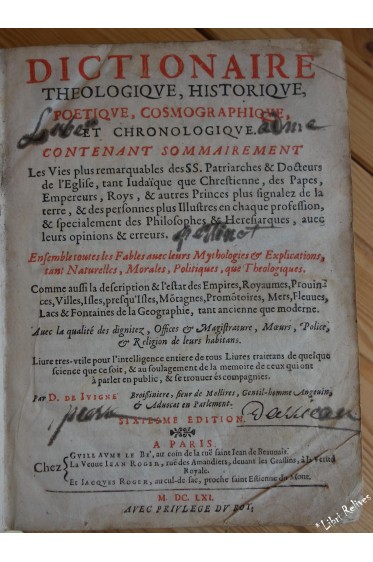 DICTIONAIRE
THEOLOGIQVE, HISTORIQVE,
POETIQVE, COSMOGRAPHIQVE,
ET CHRONOLOGIQVE.
CONTENANT SOMMAIREMENT
Les Vies plus remarquables des SS. Patriarches & Docteurs
de l'Eglise, tant Iudaïque que Chrestienne, des Papes,
Empereurs, Roys, & autres Princes plus signalez de la
terre, & des personnes plus Illustres en chaque profession,
& specialement des Philosophes & Heresiarques, auec
leurs opinions & erreurs.
Ensemble toutes les Fables auec leurs Mythologies & Explications,
tant Naturelles, Morales, Politiques, que Theologiques.
Comme aussi la description & l'estat des Empires, Royaumes, Prouin
ces, Villes, Isles, presqu'Isles, Mõtagnes, Promõtoires, Mers, Fleuues,
Lacs & Fontaines de la Geographie, tant ancienne que moderne.
Auec la qualité des dignitez, Offices & Magistrature, Mœurs, Police,
& Religion de leurs habitans.
Liure tres-vtile pour l'intelligence entiere de tous Liures traittans de quelque
science que ce soit, & au soulagement de la memoire de ceux qui ont
à parler en public, & se trouuer és compagnies.
PAR D. DE IVIGNE Broissiniere, sieur de Mollires, Gentil-homme Angeuin,
& Aduocat en Parlement.
SIXIESME EDITION.
A PARIS.
Chez
GVILLAVME LE BE', au coin de la ruë saint Iean de Beauuais.
La Venue IEAN ROGER, ruë des Amandiers, deuant les Grassins, à la Verité
Royale.
Et IACQVES ROGER, au cul-de sac, proche saint Estienne du Mont.
M. DC. LXI.
AVEC PRIVILEGE DV ROY;
*Libri Relives